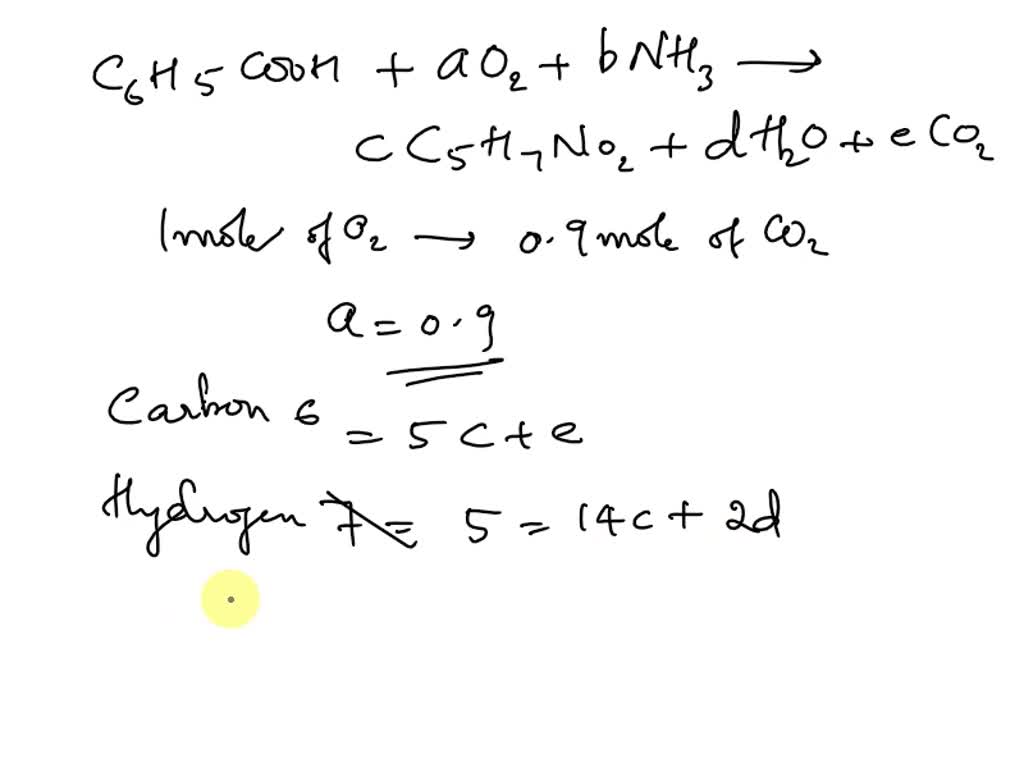 C₆H₅COOH + aO₂ + bNH₃ →
cC₅H₇NO₂ + dH₂O + eCO₂
1 mole of O₂ → 0.9 mole of CO₂
a = 0.9
Carbon 6 = 5c + e
Hydrogen 7 = 5 = 14c + 2d